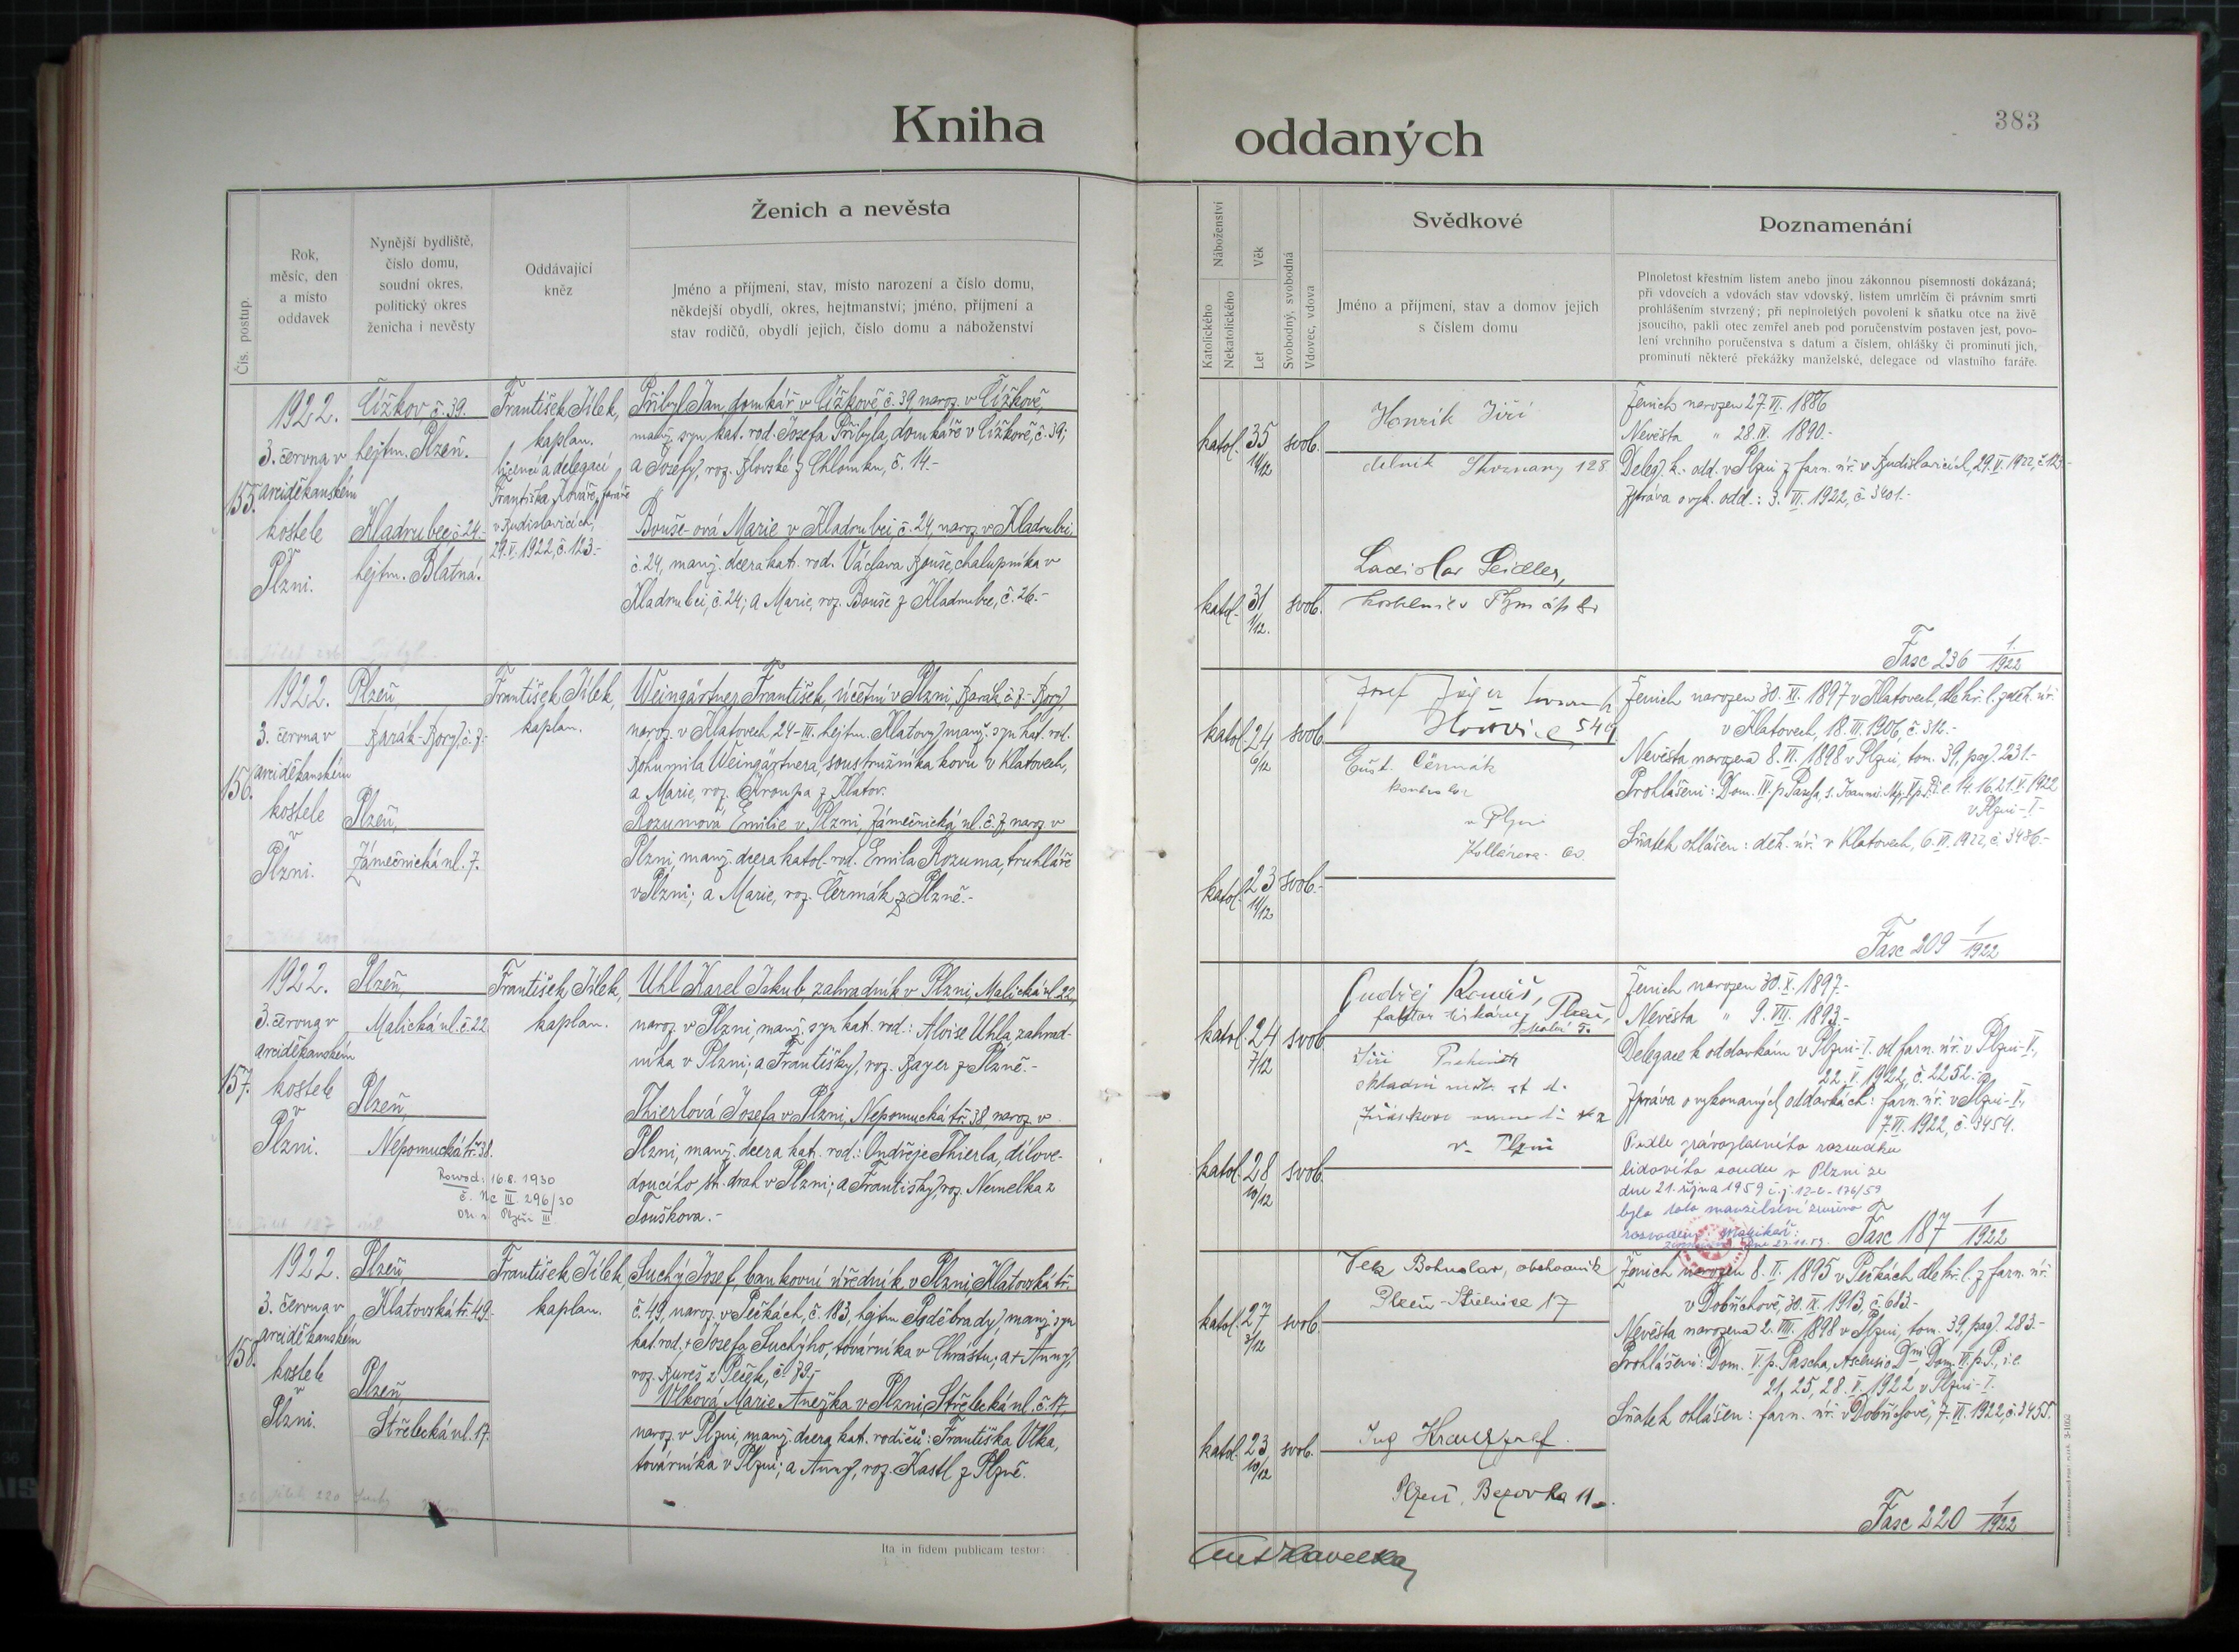 Kniha
oddaných
383
Čís. postup.
Rok,
měsíc, den
a místo
oddavek
Nynější bydliště,
číslo domu,
soudní okres,
politický okres
ženicha i nevěsty
Oddávající
kněz
Ženich a nevěsta
Jméno a příjmení, stav, místo narození a číslo domu,
někdejší obydlí, okres, hejtmanství; jméno, příjmení a
stav rodičů, obydlí jejich, číslo domu a náboženství
Náboženství
Katolického
Nekatolického
Věk
Let
Svobodný, svobodná
Vdovec, vdova
Svědkové
Jméno a příjmení, stav a domov jejich
s číslem domu
Poznamenání
Plnoletost křestním listem anebo jinou zákonnou písemností dokázaná;
při vdovcích a vdovách stav vdovský, listem umrlčím či právním smrti
prohlášením stvrzený; při neplnoletých povolení k sňatku otce na živě
jsoucího, pakli otec zemřel aneb pod poručenstvím postaven jest, povo-
lení vrchního poručenstva s datum a číslem, ohlášky či prominutí jich,
prominutí některé překážky manželské, delegace od vlastního faráře.
155.
1922.
3. června v
arciděkanském
kostele
v
Plzni.
Čížkov, č. 39.
hejtm. Plzeň.
Kladrubce, č. 24.-
hejtm. Blatná.
František Jílek,
kaplan.
licencí a delegací
Františka Kováře, faráře
v Budislavicích,
29. V. 1922, č. 123.-
Přibyl Jan, domkář v Čížkově, č. 39, naroz. v Čížkově,
manž. syn kat. rod. Josefa Přibyla, domkáře v Čížkově, č. 39;
a Josefy, roz. Blovské z Chlumku, č. 14.-
Bouše-ová Marie v Kladrubci, č. 24, naroz. v Kladrubci,
č. 24, manž. dcera kat. rod. Václava Bouše, chalupníka v
Kladrubci, č. 24; a Marie, roz. Bouše z Kladrubce, č. 26.-
katol. 35 11/12 svob.
katol. 31 1/12. svob.
Honrík Jiří
dělník Skvrnany 128
Ladislav Seidler,
kostelník v Plzni čp
Ženich narozen 27. VI. 1886
Nevěsta " 28. IV. 1890.-
Deleg. k. odd. v Plzni z farn. úř. v Budislavicích, 29. V. 1922, č. 123.-
Zpráva o vyk. odd.: 3. VI. 1922, č. 3401.-
Fasc 236 1/1922
156.
1922.
3. června v
arciděkanském
kostele
v
Plzni.
Plzeň,
Barák-Bory, č. 7.-
Plzeň,
Zámečnická ul. 7.
František Jílek,
kaplan.
Weingärtner František, účetní v Plzni, Barák, č. 7-Bory,
naroz. v Klatovech 24-III. hejtm. Klatovy, manž. syn kat. rod.
Bohumila Weingärtnera, soustružníka kovu v Klatovech,
a Marie, roz. Kroupa z Klatov.
Rozumová Emilie v Plzni, Zámečnická ul. č. 7, naroz. v
Plzni, manž. dcera katol. rod. Emila Rozuma, truhláře
v Plzni; a Marie, roz. Čermák z Plzně.-
katol. 24 6/12 svob.
katol. 23 11/12 svob.-
Josef Jäger
Hořovice 549
Čermák
v Plzni
Ženich narozen 30. XI. 1897 v Klatovech, dle kř. l. z děk. úř.
v Klatovech, 18. III. 1906, č. 312.-
Nevěsta narozena 8. VI. 1898 v Plzni, tom. 39, pag. 231.-
Prohlášení: Dom. IV. p. Pascha, s. Joann. Np, V p. P. i. e. 14. 16. 21. V. 1922
v Plzni-I-
Sňatek ohlášen: děk. úř. v Klatovech, 6. VI. 1922, č. 3486.-
Fasc 209 1/1922
157.
1922.
3. června v
arciděkanském
kostele
v
Plzni.
Plzeň,
Malická ul. č. 22.
Plzeň,
Nepomucká tř. 38.
Rozvod: 16.8. 1930
č. Nc III 296/30
Okr. s. Plzeň III.
František Jílek,
kaplan.
Uhl Karel Jakub, zahradník v Plzni, Malická ul. 22,
naroz. v Plzni, manž. syn kat. rod.: Aloise Uhla, zahrad-
níka v Plzni; a Františky, roz. Bayer z Plzně.-
Thierlová Josefa v Plzni, Nepomucká tř. 38, naroz. v
Plzni, manž. dcera kat. rod.: Ondřeje Thierla, dílove-
doucího st. drah v Plzni; a Františky, roz. Nemelka z
Touškova.-
katol. 24 7/12 svob.
katol. 28 10/12 svob.
Ondřej
faktor tiskárny, Plzeň,
Jiří
v Plzni
Ženich narozen 30. X. 1897.-
Nevěsta " 9. VII. 1893.-
Delegace k oddavkám v Plzni-I. od farn. úř. v Plzni-V.,
22. V. 1922, č. 2252.-
Zpráva o vykonaných oddavkách: farn. úř. v Plzni-V.,
7. VI. 1922, č. 3454.
Podle právoplatného rozsudku
lidového soudu v Plzni ze
dne 21. října 1959 č. j. 12-C-176/59
bylo toto manželství zrušeno
rozvodem. Matrikář:
Fasc 187 1/1922
158.
1922.
3. června v
arciděkanském
kostele
v
Plzni.
Plzeň,
Klatovská tř. 49.-
Plzeň,
Střelecká ul. 17.
František Jílek,
kaplan.
Suchý Josef, bankovní úředník v Plzni, Klatovská tř.
č. 49, naroz. v Pečkách, č. 183, hejtm. Poděbrady, manž. syn
kat. rod. + Josefa Suchýho, továrníka v Chrástu; a + Anny,
roz. Bureš z Peček, č. 79.-
Vlková Marie Anežka v Plzni, Střelecká ul. č. 17,
naroz. v Plzni, manž. dcera kat. rodičů: Františka Vlka,
továrníka v Plzni; a Anny, roz. Kastl z Plzně.
katol. 27 3/12 svob.
katol. 23 10/12 svob.
Vlk Bohuslav, obchodník
Plzeň-Střelnice 17
Ing Josef
Plzeň, Bezovka 11.
Ženich narozen 8. II. 1895 v Pečkách dle kř. l. z farn. úř.
v Dobřichově, 30. IX. 1913, č. 613.-
Nevěsta narozena 2. VIII. 1898 v Plzni, tom. 39, pag. 283.-
Prohlášení: Dom. V. p. Pascha, Ascensio Dni, Dom. VI. p. P., i. e.
21, 25, 28. V. 1922 v Plzni-I.
Sňatek ohlášen: farn. úř. v Dobřichově, 7. VI. 1922, č. 3455.
Fasc 220 1/1922
Ita in fidem publicam testor:
Ant Havelka